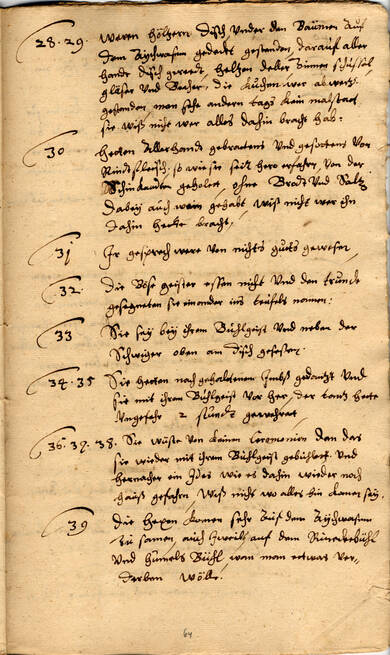 28. 29. waren höltzern disch Vnder den Bäumen Auf
dem Aychwasen gedeckt gestanden, darauf aller
handt disch gereidt, heltzen deller Zinnen schüssel
gläser Vnd Becher, die kuchen wer abwerts
gestanden, man sehe andern tags kein
sie wiß nicht wer alles dahin bracht hab:
30 hetten Allerhandt gebratens Vnd gesottens Von
Rindtfleisch, so wie sie seidt hero erfahrn, Von der
Schinkauten geholet, ohne Brodt Vnd Saltz
dabey auch wein gehabt, wiß nicht wer ihn
dahin hette bracht,
31 Ir gesprech were Von nichts guets gewesen,
32. die Böse geister essen nicht Vnd den trunck
gesegneten sie einander ins teüfels nomen:
33 Sie sey bey ihrem Buhlgeist Vnd neben der
Schwiger oben am disch gesessen.
34. 35 Sie hetten nach gehaltenem Imbß gedantzt Vnd
sie mit ihrem Buhlgeist Vor her, der tantz hette
Vngefehr 2 stundt gewehret,
36. 37. 38. Sie wüste Von keinen Ceremonien dan das
sie wieder mit ihrem Buhlgeist gebuhlet Vnd
hernacher ein Jdes wie es dahin wieder nach
hauß gefahrn, Wiß nicht wo alles hin komen sey,
39 die hexen komen sehr Auf dem Aychwasen
zu samen, auch Zweilß auf dem
Vnd Bühl, wan man etwas Ver-
derben wölle.
64